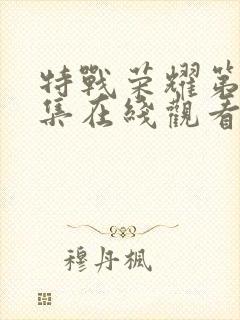 特戰荣耀第
集在綫觀看
穆丹楓